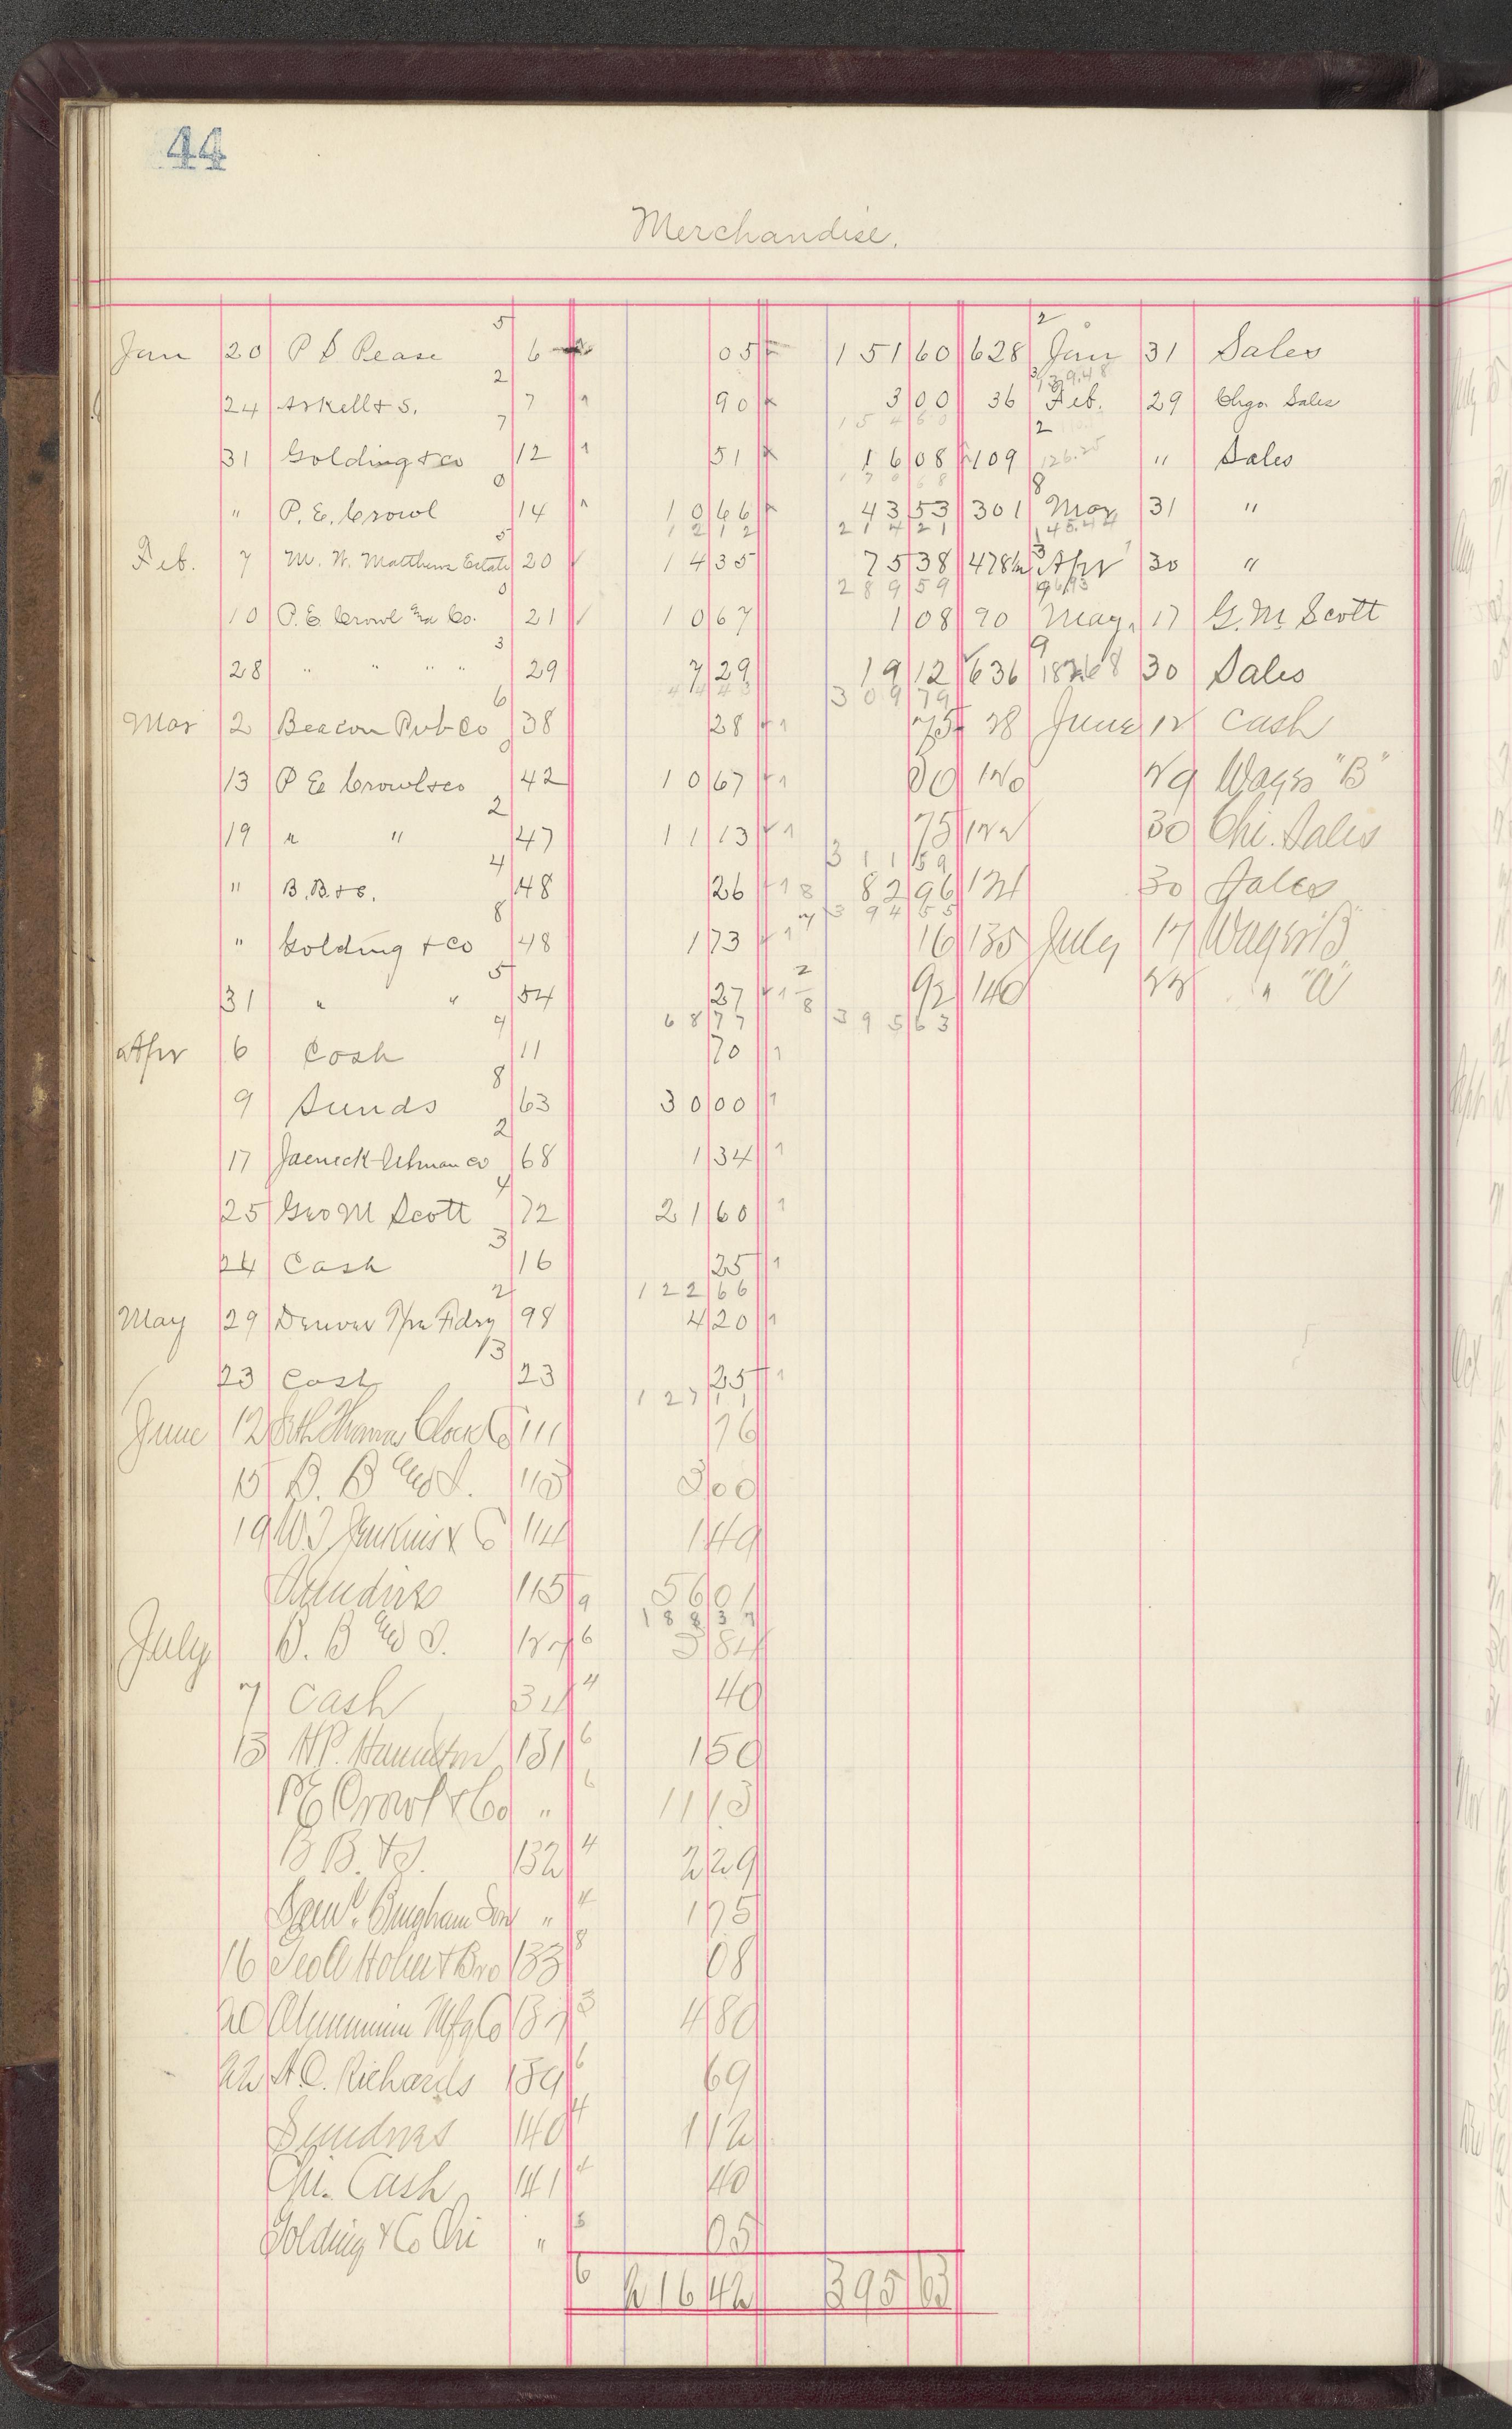 44
Merchandise.
5 2
Jan 20 P S Pease 6 05 151 60 628 Jan 31 Sales
2 139.48
24 Arkell & S. 7 90 3 00 36 Feb. 29 Chgo. Sales
7 154 60 2
31 Golding & Co 12 51 16 08 109 126.25 " Sales
0 170 68 8
" P. E. Crowl 14 10 66 43 53 301 Mar 31 "
5 12 12 214 21 145.44
Feb. 7 M. W. Matthews Estate 20 14 35 75 38 478 Apr 30 "
0 289 59 96.93
10 P. E. Crowl and Co. 21 10 67 1 08 90 May 17 G. M. Scott
3 9
28 " " " " 29 7 29 19 12 636 30 Sales
6 44 43 309 79
Mar 2 Beacon Pub Co 38 28 75 28 June 12 Cash
0
13 P E Crowl & Co 42 10 67 30 120 29 Wages "B"
2
19 " " 47 11 13 75 122 30 Chi. Sales
4 311 59
" B. B. & S. 48 26 82 96 121 30 Sales
8 394 55
" Golding & Co 48 1 73 16 135 July 17 Wages "B"
5
31 " " 54 27 92 140 22 " "A"
9 68 77 395 63
Apr 6 Cash 11 70
8
9 Sunds 63 30 00
2
17 Jaeneck-Ullman Co 68 1 34
4
25 Geo M Scott 72 21 60
3
24 Cash 16 25
2 122 66
May 29 Denver Type Fdry 98 4 20
13
23 Cash 23 25
127 11
June 12 Seth Thomas Clock Co 111 76
15 B. B and S. 113 3 00
19 W. J Jenkins & Co 114 1 49
Sundries 115 9 56 01
188 37
July B. B and S. 127 6 3 84
7 Cash 34 4 40
13 H P. Hamilton 131 6 1 50
P E Crowl & Co " 6 11 13
B B. & S. 132 4 2 29
Saml. Bingham Son " 4 1 75
16 133 8 08
20 Aluminum Mfg Co 137 3 4 80
22 A. C. Richards 139 6 69
Sundries 140 4 1 12
Chi. Cash 141 4 40
Golding & Co Chi " 3 05
6 216 42 395 63